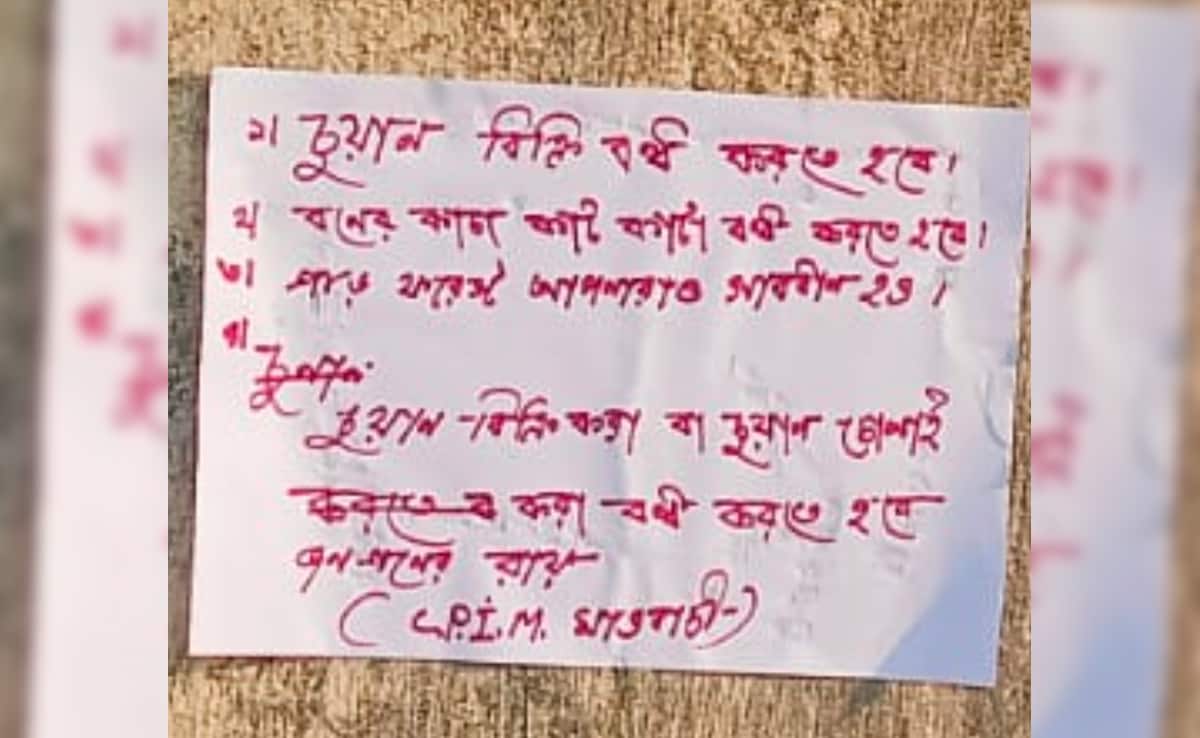 ১। চুয়ান বিক্রি বন্ধ করতে হবে।
২। বনের কাচা কাট কাটা বন্ধ করতে হবে।
৩। গার্ড ফরেস্ট আপনারাও সাবধান হও।
৪।
চুয়ান বিক্রি করা বা চুয়ান চোলাই
করতে ব করা বন্ধ করতে হবে
জনগনের রায়
(C.P.I.M. মাওবাদী)